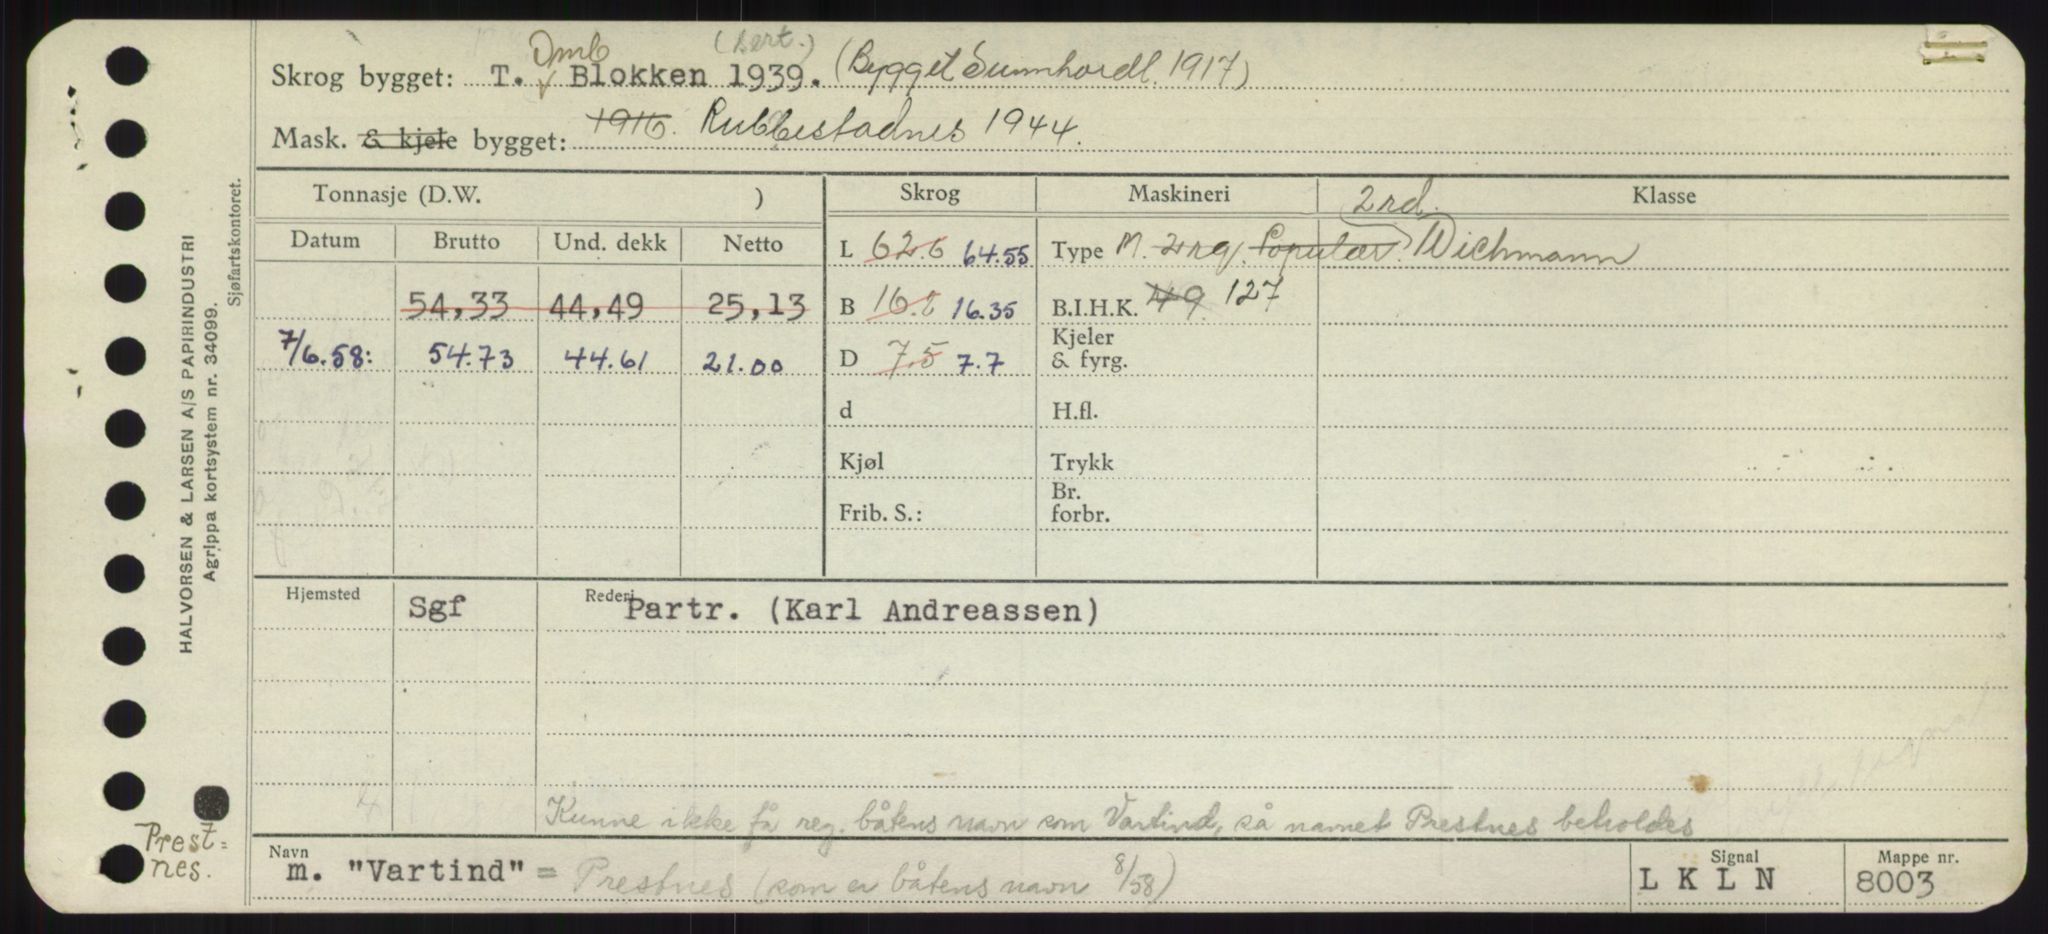 Omb (sert.)
Skrog bygget: T. Blokken 1939. (Bygget Sunnhordl. 1917)
Mask. & kjele bygget: 1916. Rubbestadnes 1944.
Tonnasje (D.W. ) Skrog Maskineri 2rd. Klasse
Datum Brutto Und. dekk Netto L 62.6 64.55 Type M. 2rg. Populær Wichmann
54,33 44,49 25,13 B 16.2 16.35 B.I.H.K. 49 127
7/6.58: 54.73 44.61 21.00 D 7.5 7.7 Kjeler & fyrg.
d H.fl.
Kjøl Trykk
Frib. S.: Br. forbr.
Hjemsted Sgf Rederi Partr. (Karl Andreassen)
Kunne ikke få reg. båtens navn som Vartind, så navnet Prestnes beholdes
Navn m. "Vartind" = Prestnes (som er båtens navn 8/58) Signal L K L N Mappe nr. 8003
Prest=
nes.
HALVORSEN & LARSEN A/S PAPIRINDUSTRI
Agrippa kortsystem nr. 34099.
Sjøfartskontoret.